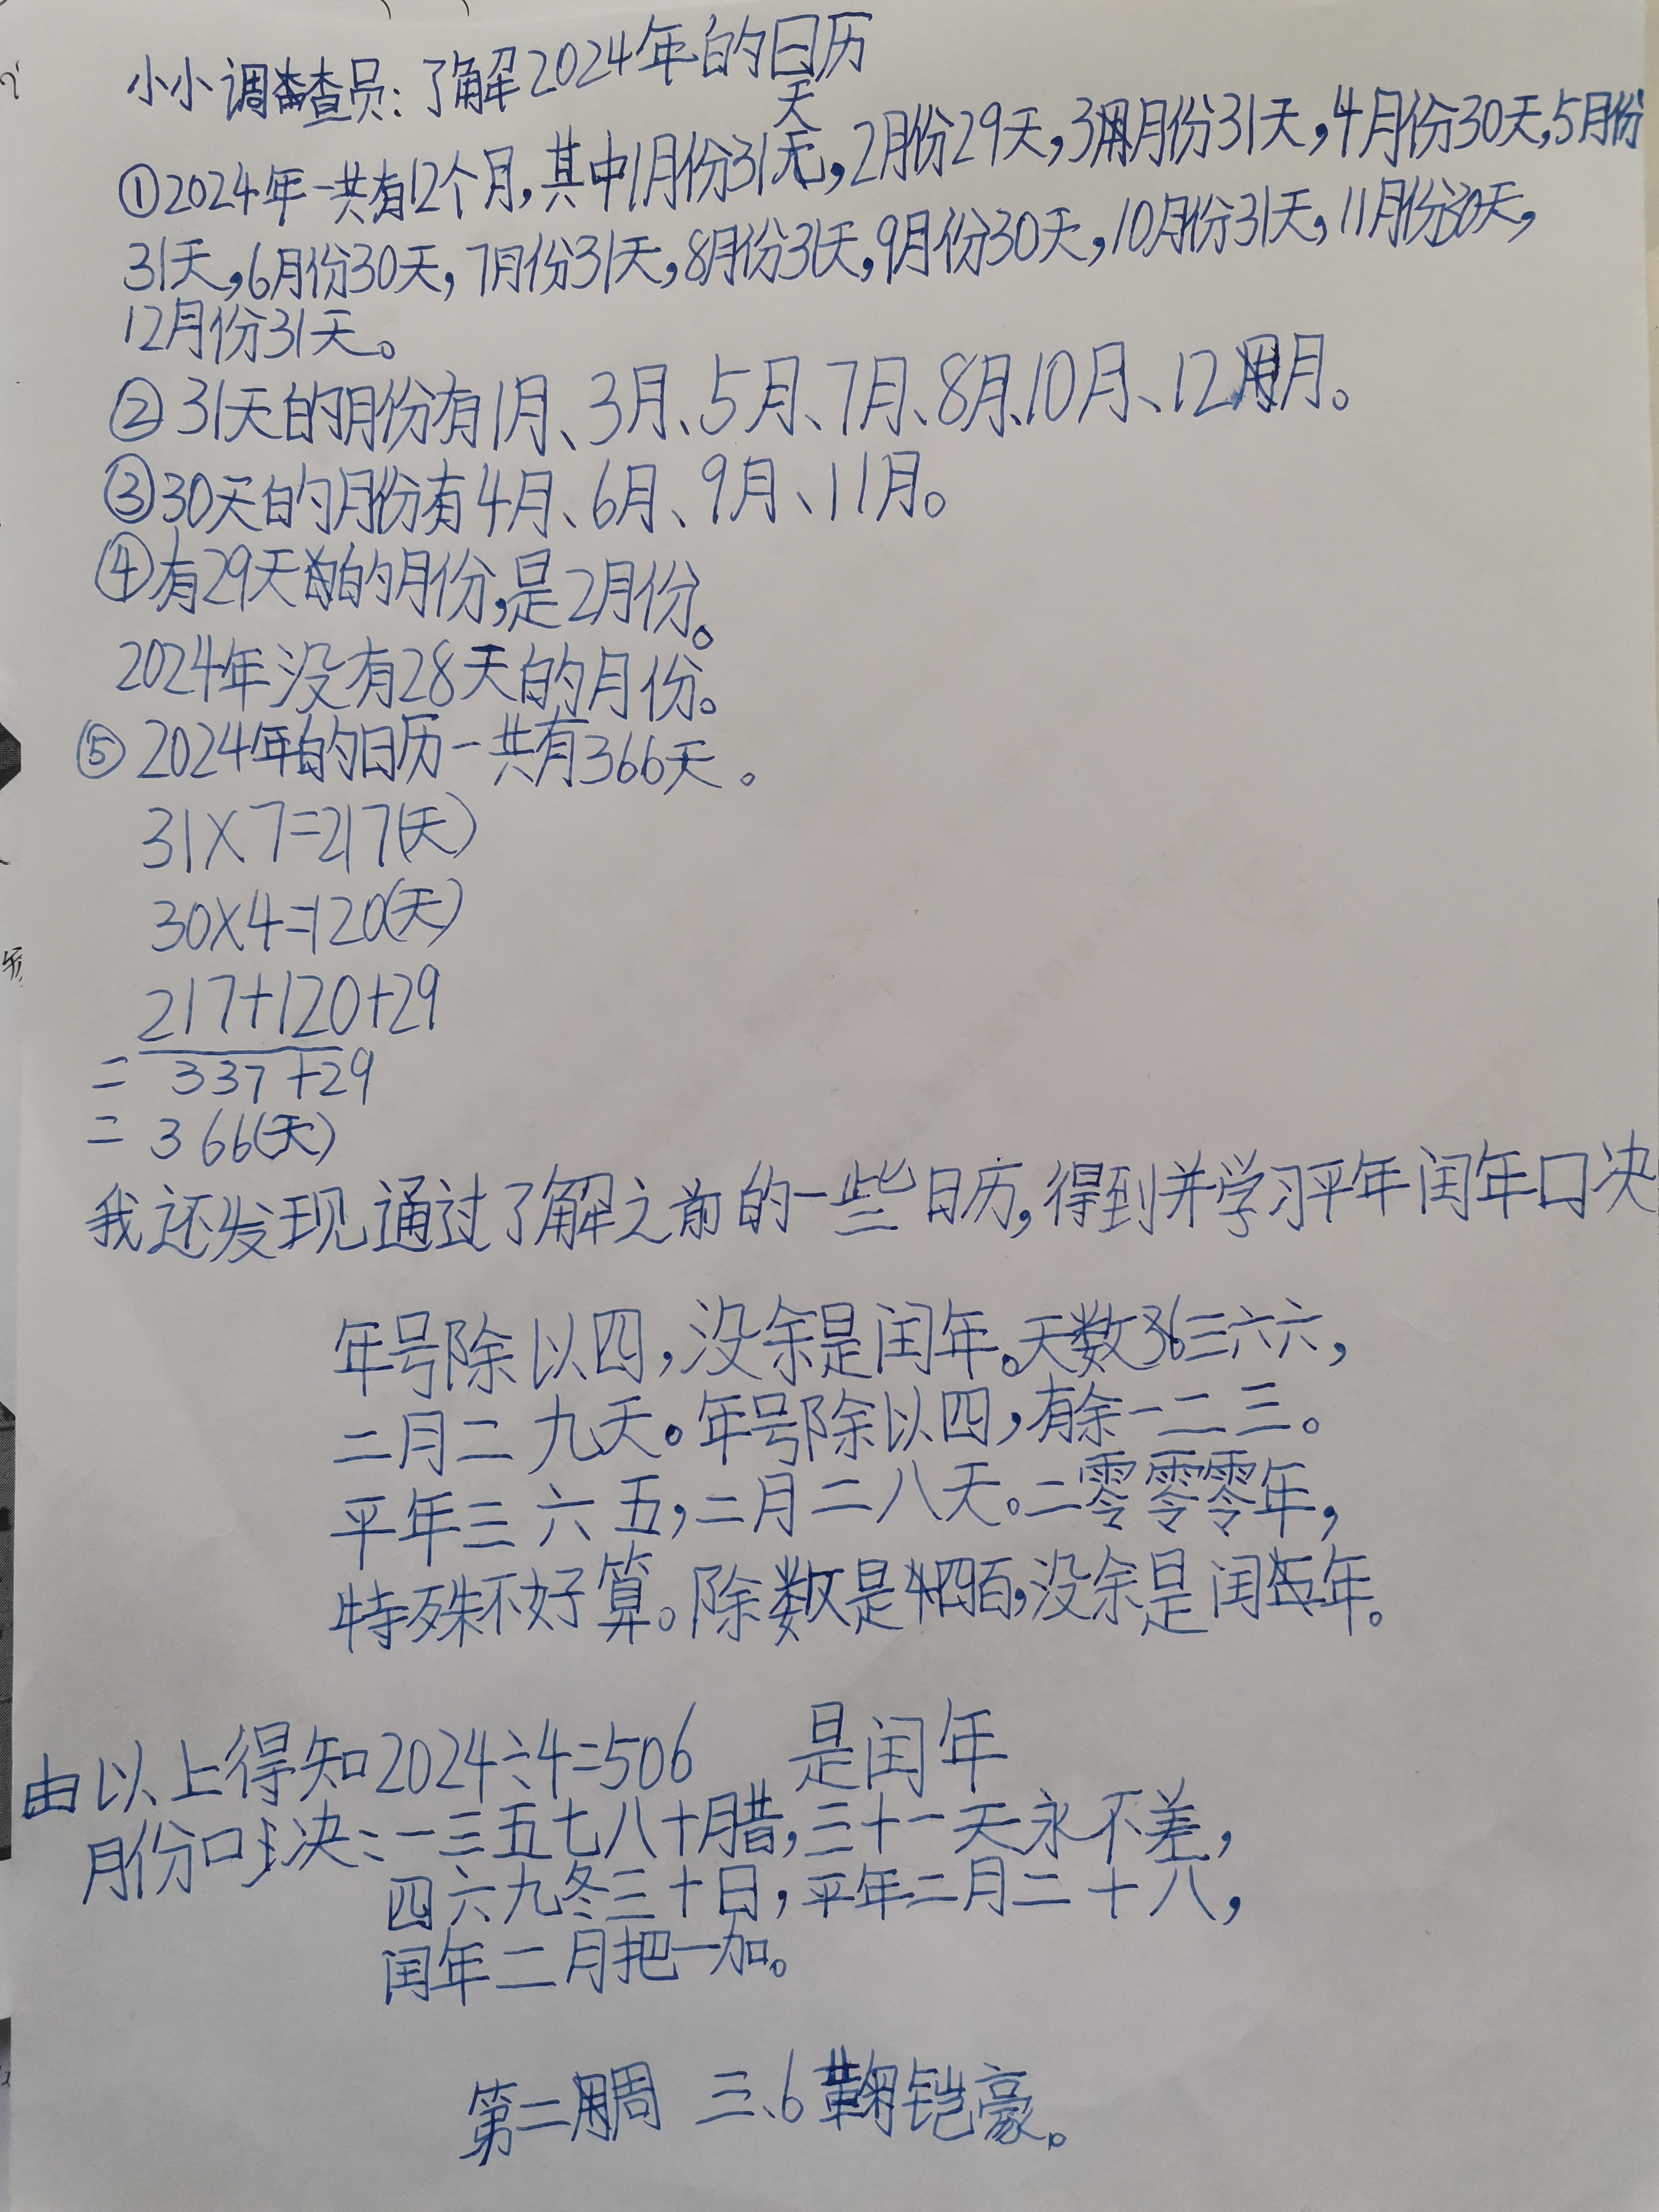 小小调查员：了解2024年的日历
①2024年一共有12个月，其中1月份31天，2月份29天，3月份31天，4月份30天，5月份
31天，6月份30天，7月份31天，8月份31天，9月份30天，10月份31天，11月份30天，
12月份31天。
②31天的月份有1月、3月、5月、7月、8月、10月、12月。
③30天的月份有4月、6月、9月、11月。
④有29天的月份，是2月份。
2024年没有28天的月份。
⑤2024年的日历一共有366天。
31×7=217(天)
30×4=120(天)
217+120+29
=337+29
=366(天)
我还发现通过了解之前的一些日历，得到并学习平年闰年口决
年号除以四，没余是闰年。天数三六六，
二月二九天。年号除以四，有余一二三。
平年三六五，二月二八天。二零零零年，
特殊不好算。除数是四百，没余是闰年。
由以上得知2024÷4=506 是闰年
月份口决：一三五七八十腊，三十一天永不差，
四六九冬三十日，平年二月二十八，
闰年二月把一加。
第二周 三、6 鞠铠豪。